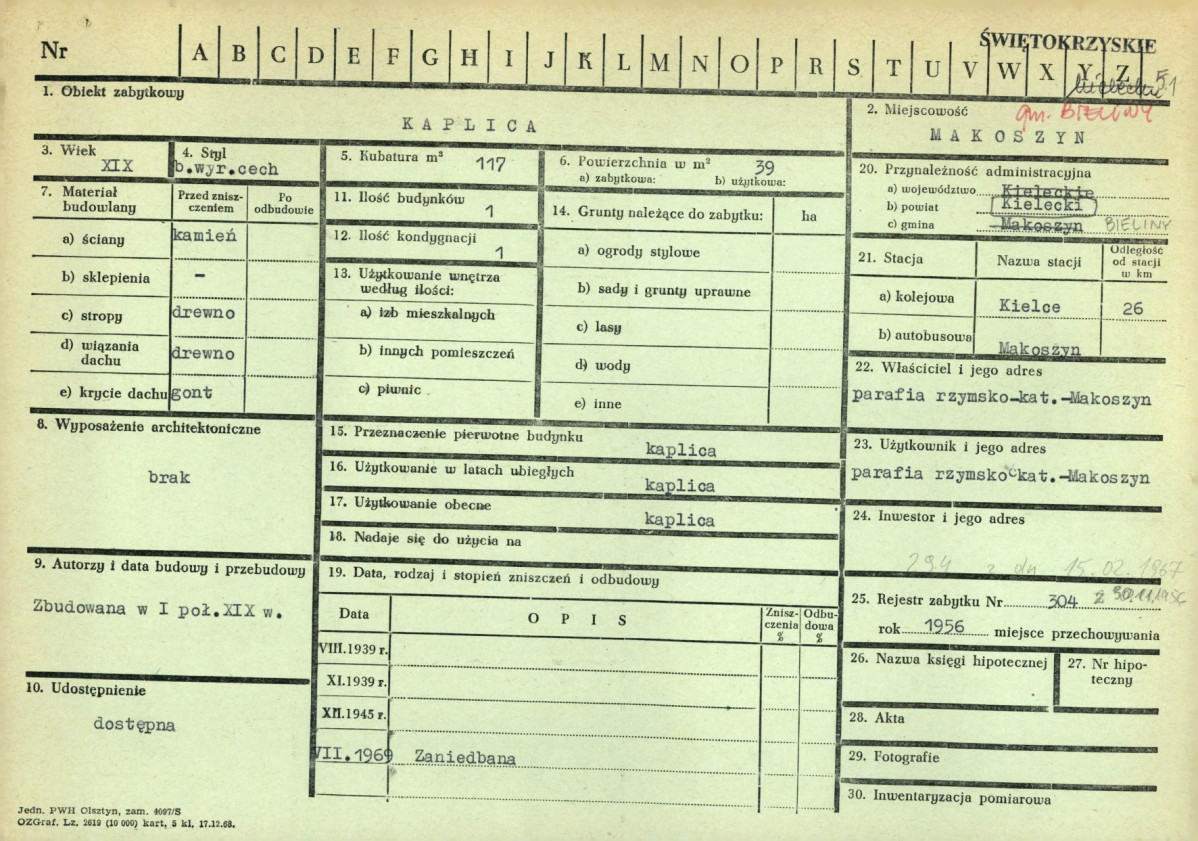 Nr A B C D E F G H I J K L M N O P R S T U V W X Y Z
ŚWIĘTOKRZYSKIE
51
1. Obiekt zabytkowy
KAPLICA
2. Miejscowość
gm. BIELINY
MAKOSZYN
3. Wiek
XIX
4. Styl
b.wyr.cech
5. Kubatura m³ 117
6. Powierzchnia w m² 39
a) zabytkowa: b) użytkowa:
7. Materiał budowlany
Przed zniszczeniem
Po odbudowie
a) ściany kamień
b) sklepienia –
c) stropy drewno
d) wiązania dachu drewno
e) krycie dachu gont
11. Ilość budynków
1
12. Ilość kondygnacji
1
13. Użytkowanie wnętrza
według ilości:
a) izb mieszkalnych
b) innych pomieszczeń
c) piwnic
14. Grunty należące do zabytku: ha
a) ogrody stylowe
b) sady i grunty uprawne
c) lasy
d) wody
e) inne
20. Przynależność administracyjna
a) województwo Kieleckie
b) powiat Kielecki
c) gmina Makoszyn BIELINY
21. Stacja
Nazwa stacji
Odległość od stacji w km
a) kolejowa Kielce 26
b) autobusowa Makoszyn
22. Właściciel i jego adres
parafia rzymsko-kat.-Makoszyn
8. Wyposażenie architektoniczne
brak
15. Przeznaczenie pierwotne budynku
kaplica
16. Użytkowanie w latach ubiegłych
kaplica
17. Użytkowanie obecne
kaplica
18. Nadaje się do użycia na
23. Użytkownik i jego adres
parafia rzymsko kat.-Makoszyn
24. Inwestor i jego adres
294 z dn 15.02.1967
9. Autorzy i data budowy i przebudowy
Zbudowana w I poł.XIX w.
19. Data, rodzaj i stopień zniszczeń i odbudowy
Data
OPIS
Zniszczenia %
Odbudowa %
VIII.1939 r.
XI.1939 r.
XII.1945 r.
VII.1969 Zaniedbana
25. Rejestr zabytku Nr 304 z
rok 1956 miejsce przechowywania
26. Nazwa księgi hipotecznej
27. Nr hipoteczny
28. Akta
29. Fotografie
30. Inwentaryzacja pomiarowa
10. Udostępnienie
dostępna
Jedn. PWH Olsztyn, zam. 4097/S
OZGraf. Lz. 2619 (10 000) kart, 5 kl, 17.12.68.